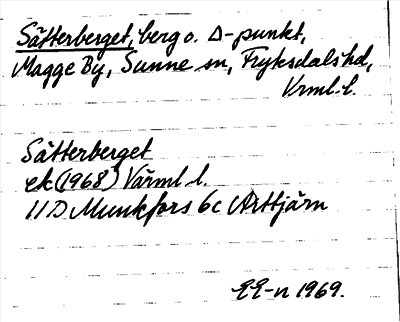 Sätterberget, berg o. Δ-punkt,
Magge By, Sunne sn, Fryksdals hd,
Vrml. l.
Sätterberget
ek (1968) Värml l.
11D Munkfors 6c Arttjärn
EE-n 1969.